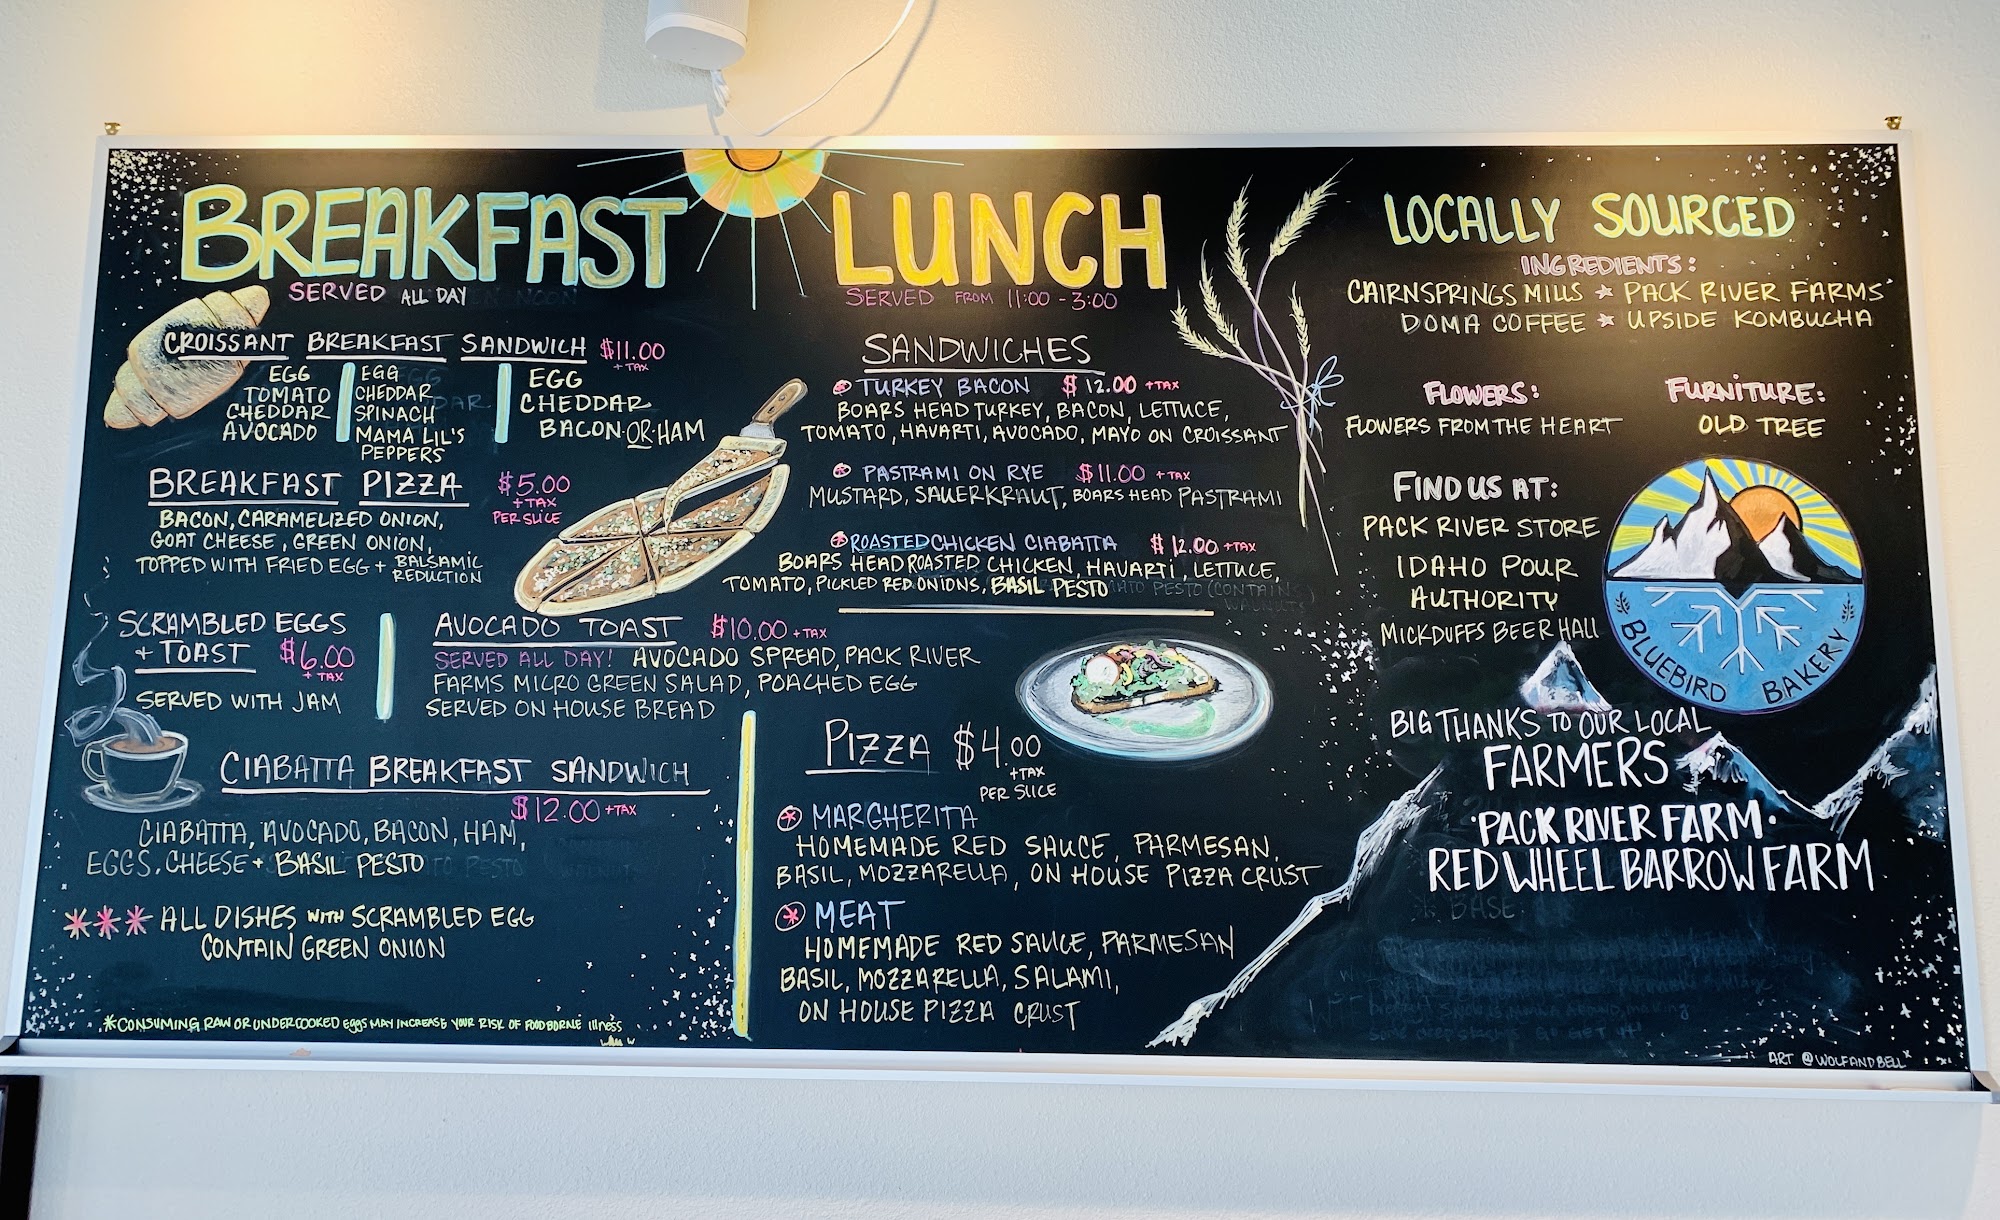 BREAKFAST
SERVED ALL DAY
CROISSANT BREAKFAST SANDWICH $11.00
+ TAX
EGG
TOMATO
CHEDDAR
AVOCADO
EGG
CHEDDAR
SPINACH
MAMA LIL'S
PEPPERS
EGG
CHEDDAR
BACON OR HAM
BREAKFAST PIZZA $5.00
+ TAX
PER SLICE
BACON, CARAMELIZED ONION,
GOAT CHEESE, GREEN ONION,
TOPPED WITH FRIED EGG + BALSAMIC
REDUCTION
SCRAMBLED EGGS
+ TOAST $6.00
+ TAX
SERVED WITH JAM
AVOCADO TOAST $10.00 + TAX
SERVED ALL DAY! AVOCADO SPREAD, PACK RIVER
FARMS MICRO GREEN SALAD, POACHED EGG
SERVED ON HOUSE BREAD
CIABATTA BREAKFAST SANDWICH
$12.00 + TAX
CIABATTA, AVOCADO, BACON, HAM,
EGGS, CHEESE + BASIL PESTO
*** ALL DISHES WITH SCRAMBLED EGG
CONTAIN GREEN ONION
*CONSUMING RAW OR UNDERCOOKED EGGS MAY INCREASE YOUR RISK OF FOODBORNE illness
LUNCH
SERVED FROM 11:00 - 3:00
SANDWICHES
TURKEY BACON $12.00 + TAX
BOARS HEAD TURKEY, BACON, LETTUCE,
TOMATO, HAVARTI, AVOCADO, MAYO ON CROISSANT
PASTRAMI ON RYE $11.00 + TAX
MUSTARD, SAUERKRAUT, BOARS HEAD PASTRAMI
ROASTED CHICKEN CIABATTA $12.00 + TAX
BOARS HEAD ROASTED CHICKEN, HAVARTI, LETTUCE,
TOMATO, PICKLED RED ONIONS, BASIL PESTO
PIZZA $4.00
+ TAX
PER SLICE
MARGHERITA
HOMEMADE RED SAUCE, PARMESAN,
BASIL, MOZZARELLA, ON HOUSE PIZZA CRUST
MEAT
HOMEMADE RED SAUCE, PARMESAN
BASIL, MOZZARELLA, SALAMI,
ON HOUSE PIZZA CRUST
LOCALLY SOURCED
INGREDIENTS:
CAIRNSPRINGS MILLS * PACK RIVER FARMS
DOMA COFFEE * UPSIDE KOMBUCHA
FLOWERS:
FLOWERS FROM THE HEART
FURNITURE:
OLD TREE
FIND US AT:
PACK RIVER STORE
IDAHO POUR
AUTHORITY
MICKDUFFS BEER HALL
BLUEBIRD BAKERY
BIG THANKS TO OUR LOCAL
FARMERS
·PACK RIVER FARM·
RED WHEEL BARROW FARM
ART @WOLFANDBELL